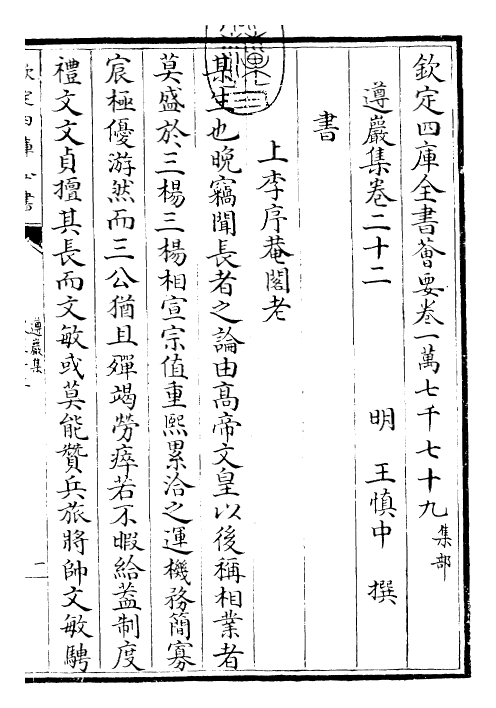 欽定四庫全書薈要卷一萬七千七十九集部
遵巖集卷二十二　　　明　王慎中　撰
書
上李序菴閣老
某生也晚竊聞長者之論由高帝文皇以後稱相業者
莫盛於三楊三楊相宣宗值重熙累洽之運機務簡寡
宸極優游然而三公猶且殫竭勞瘁若不暇給葢制度
禮文文貞擅其長而文敏或莫能贊兵旅將帥文敏騁
欽定四庫全書
遵巖集